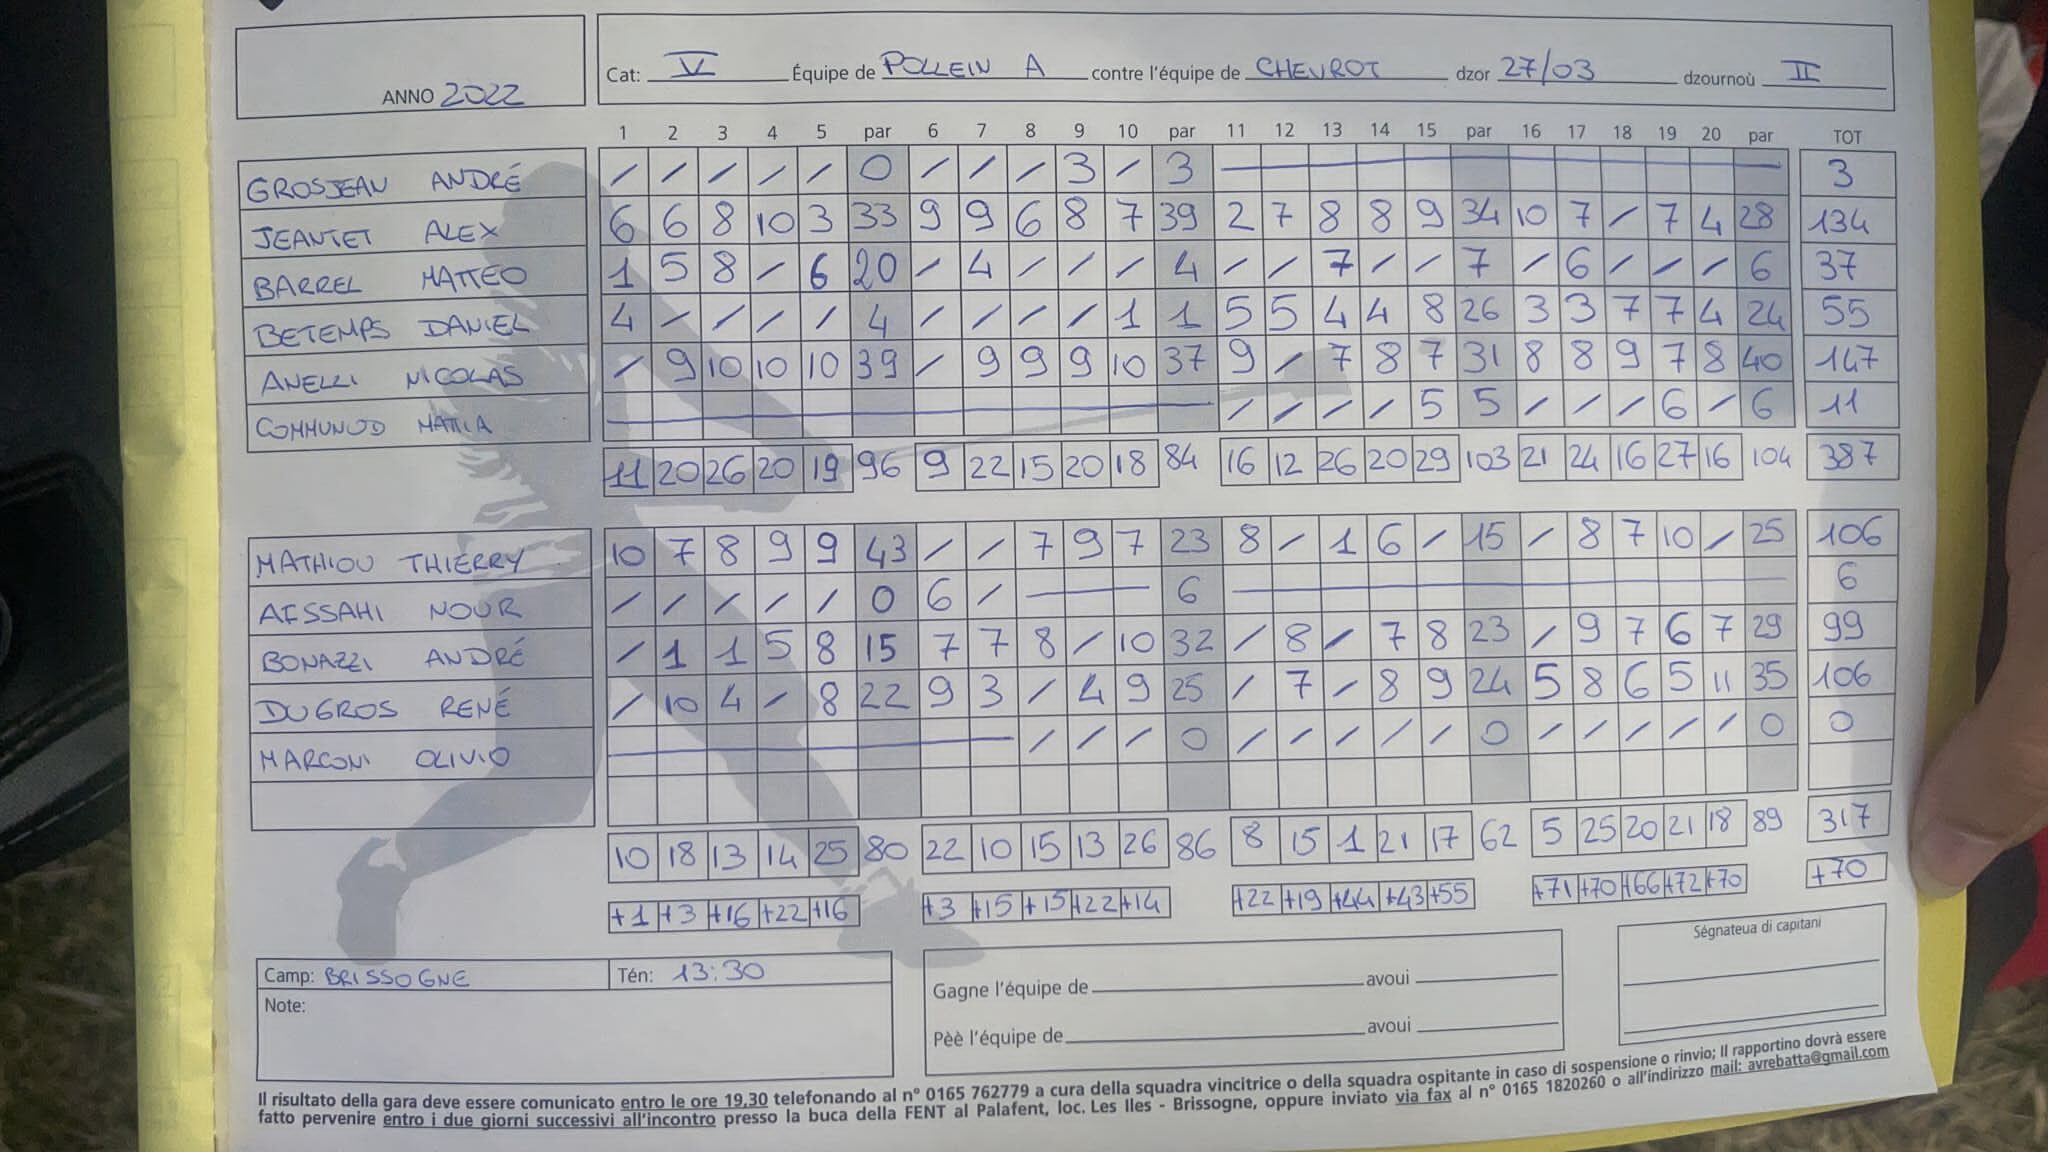 ANNO 2022
Cat: V Équipe de POLLEIN A contre l'équipe de CHEVROT dzor 27/03 dzournoù II
1 2 3 4 5 par 6 7 8 9 10 par 11 12 13 14 15 par 16 17 18 19 20 par TOT
GROSJEAN ANDRÉ / / / / / 0 / / / 3 / 3 — 3
JEANTET ALEX 6 6 8 10 3 33 9 9 6 8 7 39 2 7 8 8 9 34 10 7 / 7 4 28 134
BARREL MATTEO 1 5 8 / 6 20 / 4 / / / 4 / / 7 / / 7 / 6 / / / 6 37
BETEMPS DANIEL 4 / / / / 4 / / / / 1 1 5 5 4 4 8 26 3 3 7 7 4 24 55
ANELLI NICOLAS / 9 10 10 10 39 / 9 9 9 10 37 9 / 7 8 7 31 8 8 9 7 8 40 147
COMMUNOD MATTIA — / / / / 5 5 / / / 6 / 6 11
11 20 26 20 19 96 9 22 15 20 18 84 16 12 26 20 29 103 21 24 16 27 16 104 387
MATHIOU THIERRY 10 7 8 9 9 43 / / 7 9 7 23 8 / 1 6 / 15 / 8 7 10 / 25 106
AISSAHI NOUR / / / / / 0 6 / — 6 — 6
BONAZZI ANDRÉ / 1 1 5 8 15 7 7 8 / 10 32 / 8 / 7 8 23 / 9 7 6 7 29 99
DUGROS RENÉ / 10 4 / 8 22 9 3 / 4 9 25 / 7 / 8 9 24 5 8 6 5 11 35 106
MARCONI OLIVIO — / / / 0 / / / / / 0 / / / / / 0 0
10 18 13 14 25 80 22 10 15 13 26 86 8 15 1 21 17 62 5 25 20 21 18 89 317
+1 +3 +16 +22 +16 +3 +15 +15 +22 +14 +22 +19 +44 +43 +55 +71 +70 +66 +72 +70 +70
Camp: BRISSOGNE Tén: 13:30
Note:
Gagne l'équipe de avoui
Pèè l'équipe de avoui
Ségnateua di capitani
Il risultato della gara deve essere comunicato entro le ore 19,30 telefonando al n° 0165 762779 a cura della squadra vincitrice o della squadra ospitante in caso di sospensione o rinvio; Il rapportino dovrà essere
fatto pervenire entro i due giorni successivi all'incontro presso la buca della FENT al Palafent, loc. Les Iles - Brissogne, oppure inviato via fax al n° 0165 1820260 o all'indirizzo mail: avrebatta@gmail.com